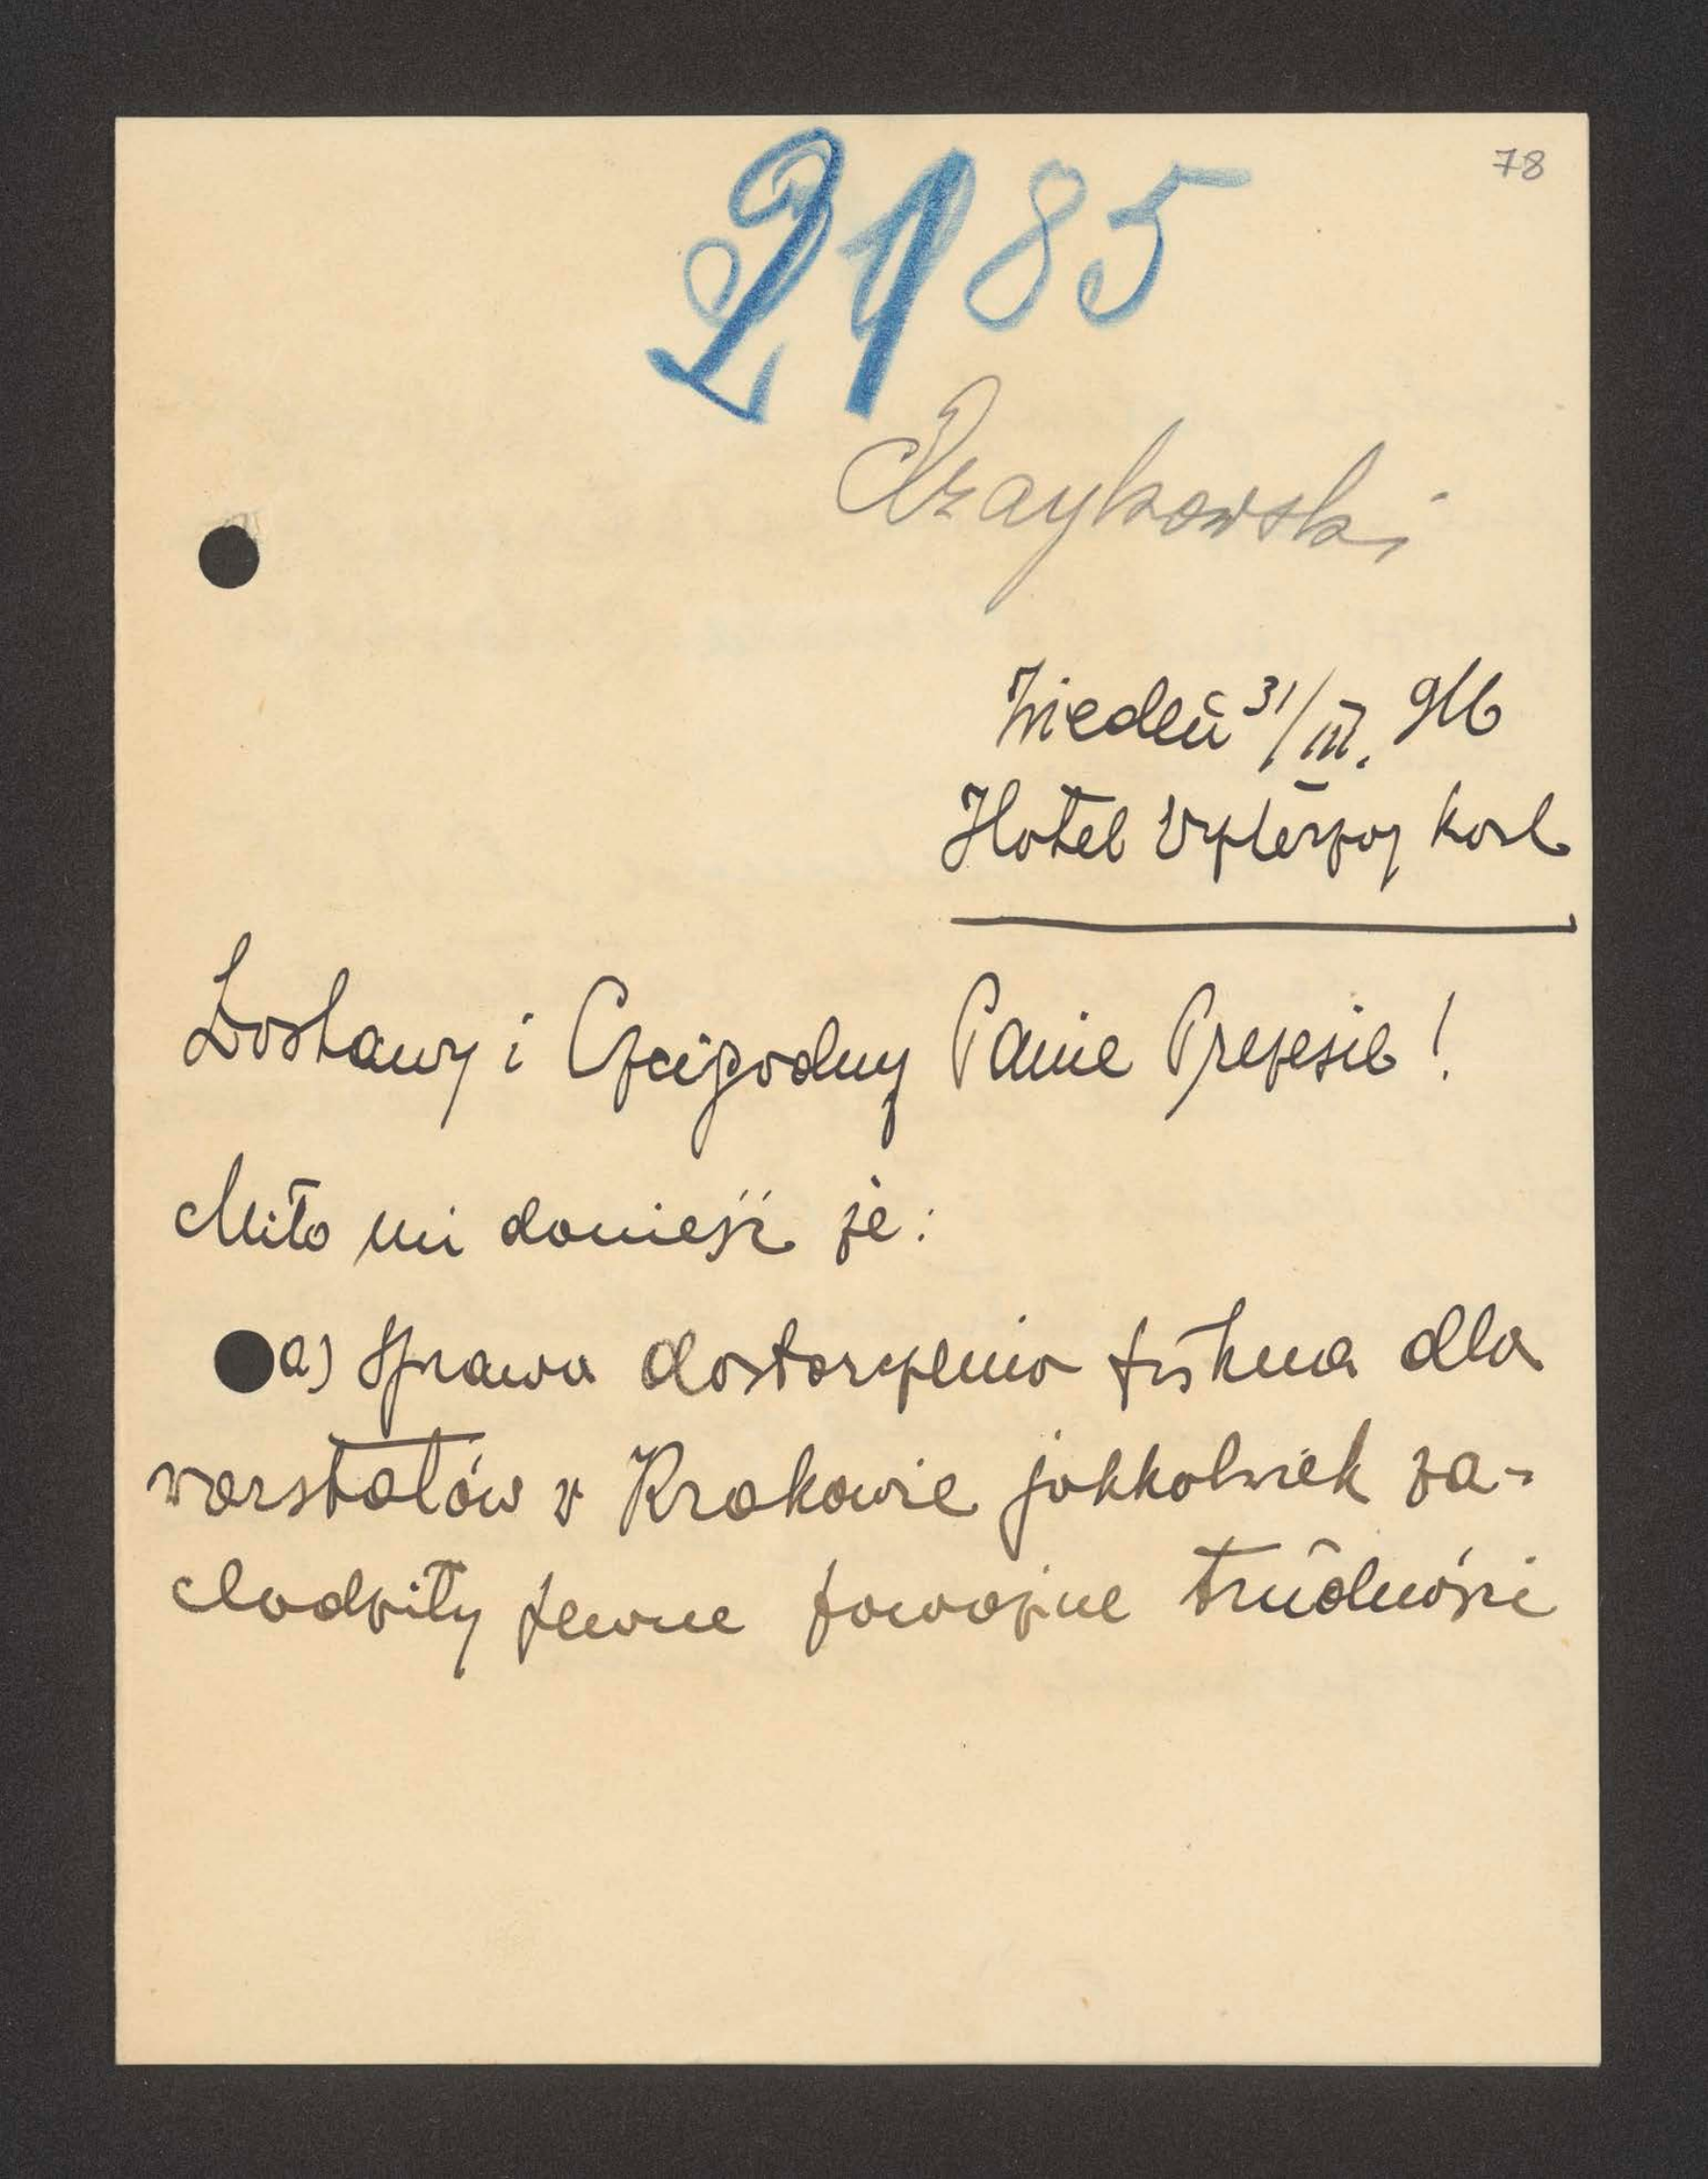 78
2185
Wiedeń 31/III. 916
Hotel Erzherzog Karl
Łaskawy i Czcigodny Panie Prezesie!
Miło mi donieść że:
a) sprawa dostarczenia sukna dla
warstatów w Krakowie jakkolwiek za-
chodziły pewne poważne trudności